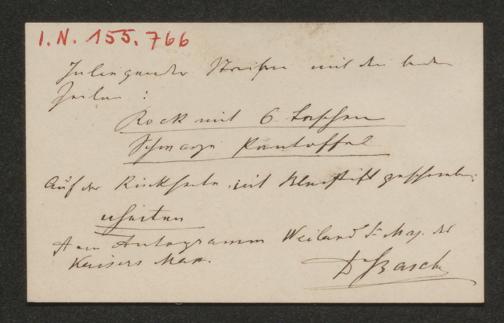 I.N. 155.766
Inliegender Streifen mit den beiden
Zeilen :
Rock mit 6 Taschen
Schwarze Pantoffel
Auf der Rückseite mit Bleistift geschrieben:
arbeiten
Autogramm Weiland Sr Maj. des
Kaisers Max.
Dr Basch